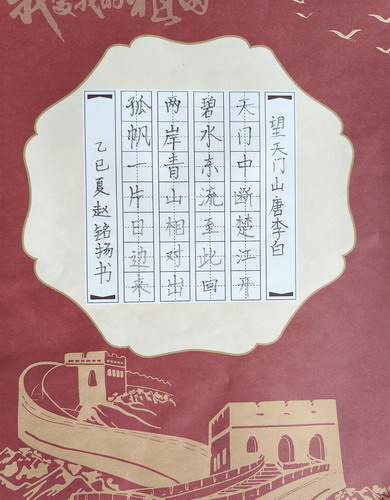 我爱我的祖国
望天门山唐李白
天门中断楚江开
碧水东流至此回
两岸青山相对出
孤帆一片日边来
乙巳夏赵铭扬书